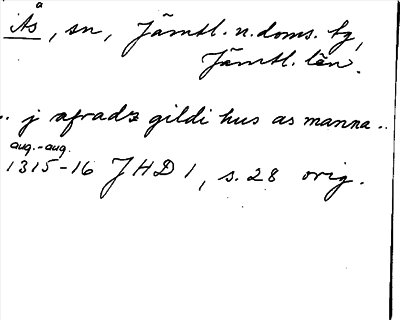 Ås, sn, Jämtl. n. doms. tg,
Jämtl. län.
.. j afradz gildi hus as manna..
aug.-aug.
1315-16 JHD 1, s. 28 orig.